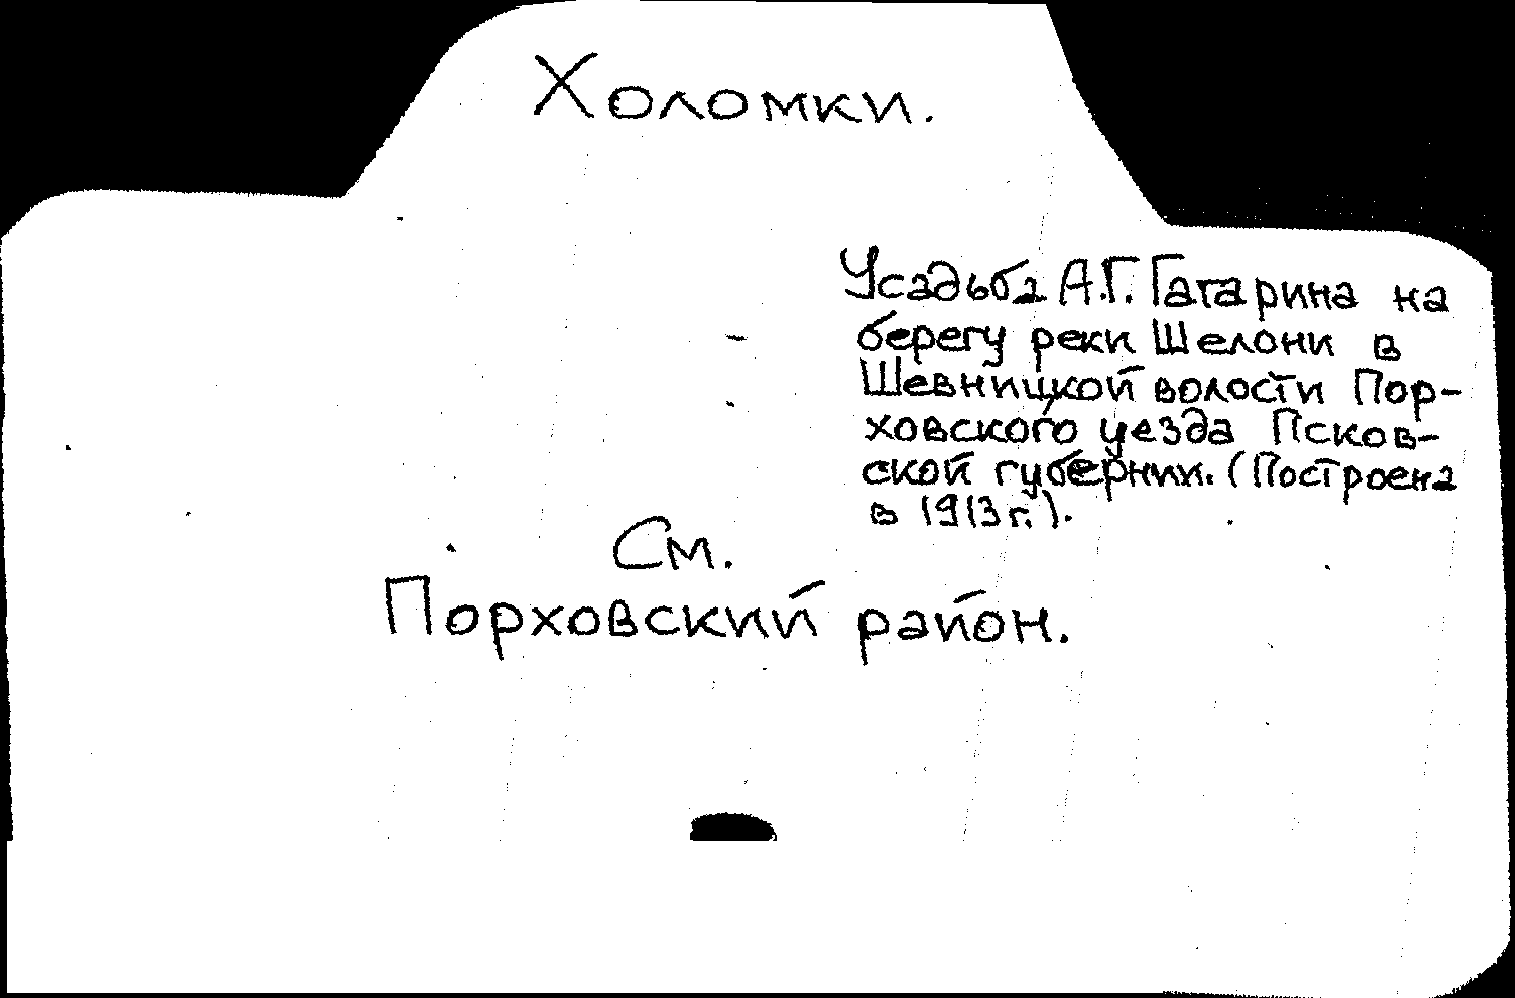 Холомки.
Усадьба А.Г. Гагарина на
берегу реки Шелони в
Шевницкой волости Пор-
ховского уезда Псков-
ской губернии. (Построена
в 1913 г.).
См.
Порховский район.